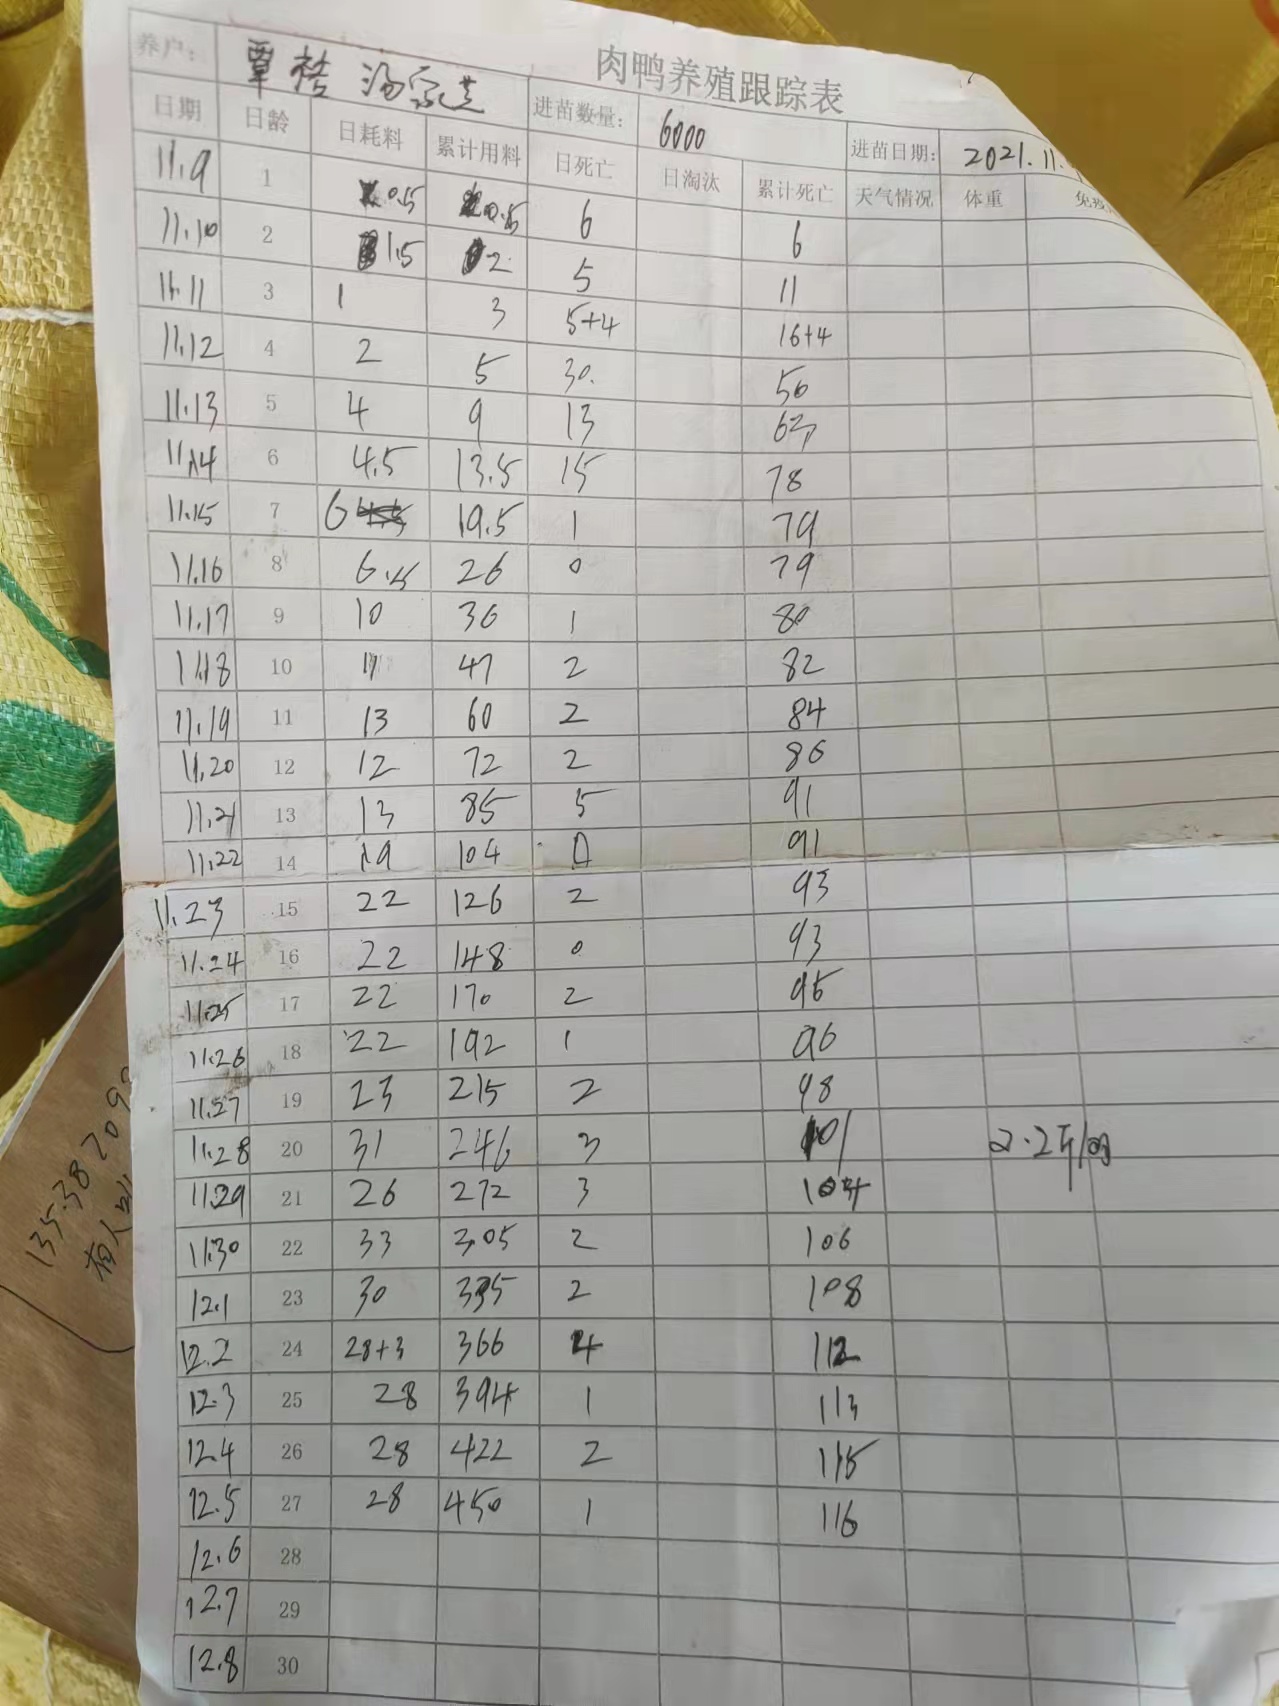 肉鸭养殖跟踪表
养户： 覃 进苗数量： 6000 进苗日期： 2021.11.
日期 日龄 日耗料 累计用料 日死亡 日淘汰 累计死亡 天气情况 体重 免疫
11.9 1 0.5 0.5 6 6
11.10 2 1.5 2 5 11
11.11 3 1 3 5+4 16+4
11.12 4 2 5 30. 50
11.13 5 4 9 13 63
11.14 6 4.5 13.5 15 78
11.15 7 6 19.5 1 79
11.16 8 6.5 26 0 79
11.17 9 10 36 1 80
11.18 10 11 47 2 82
11.19 11 13 60 2 84
11.20 12 12 72 2 86
11.21 13 13 85 5 91
11.22 14 19 104 0 91
11.23 15 22 126 2 93
11.24 16 22 148 0 93
11.25 17 22 170 2 95
11.26 18 22 192 1 96
11.27 19 23 215 2 98
11.28 20 31 246 3 101 2.2斤/
11.29 21 26 272 3 104
11.30 22 33 305 2 106
12.1 23 30 335 2 108
12.2 24 28+3 366 4 112
12.3 25 28 394 1 113
12.4 26 28 422 2 115
12.5 27 28 450 1 116
12.6 28
12.7 29
12.8 30
135.38709
有人